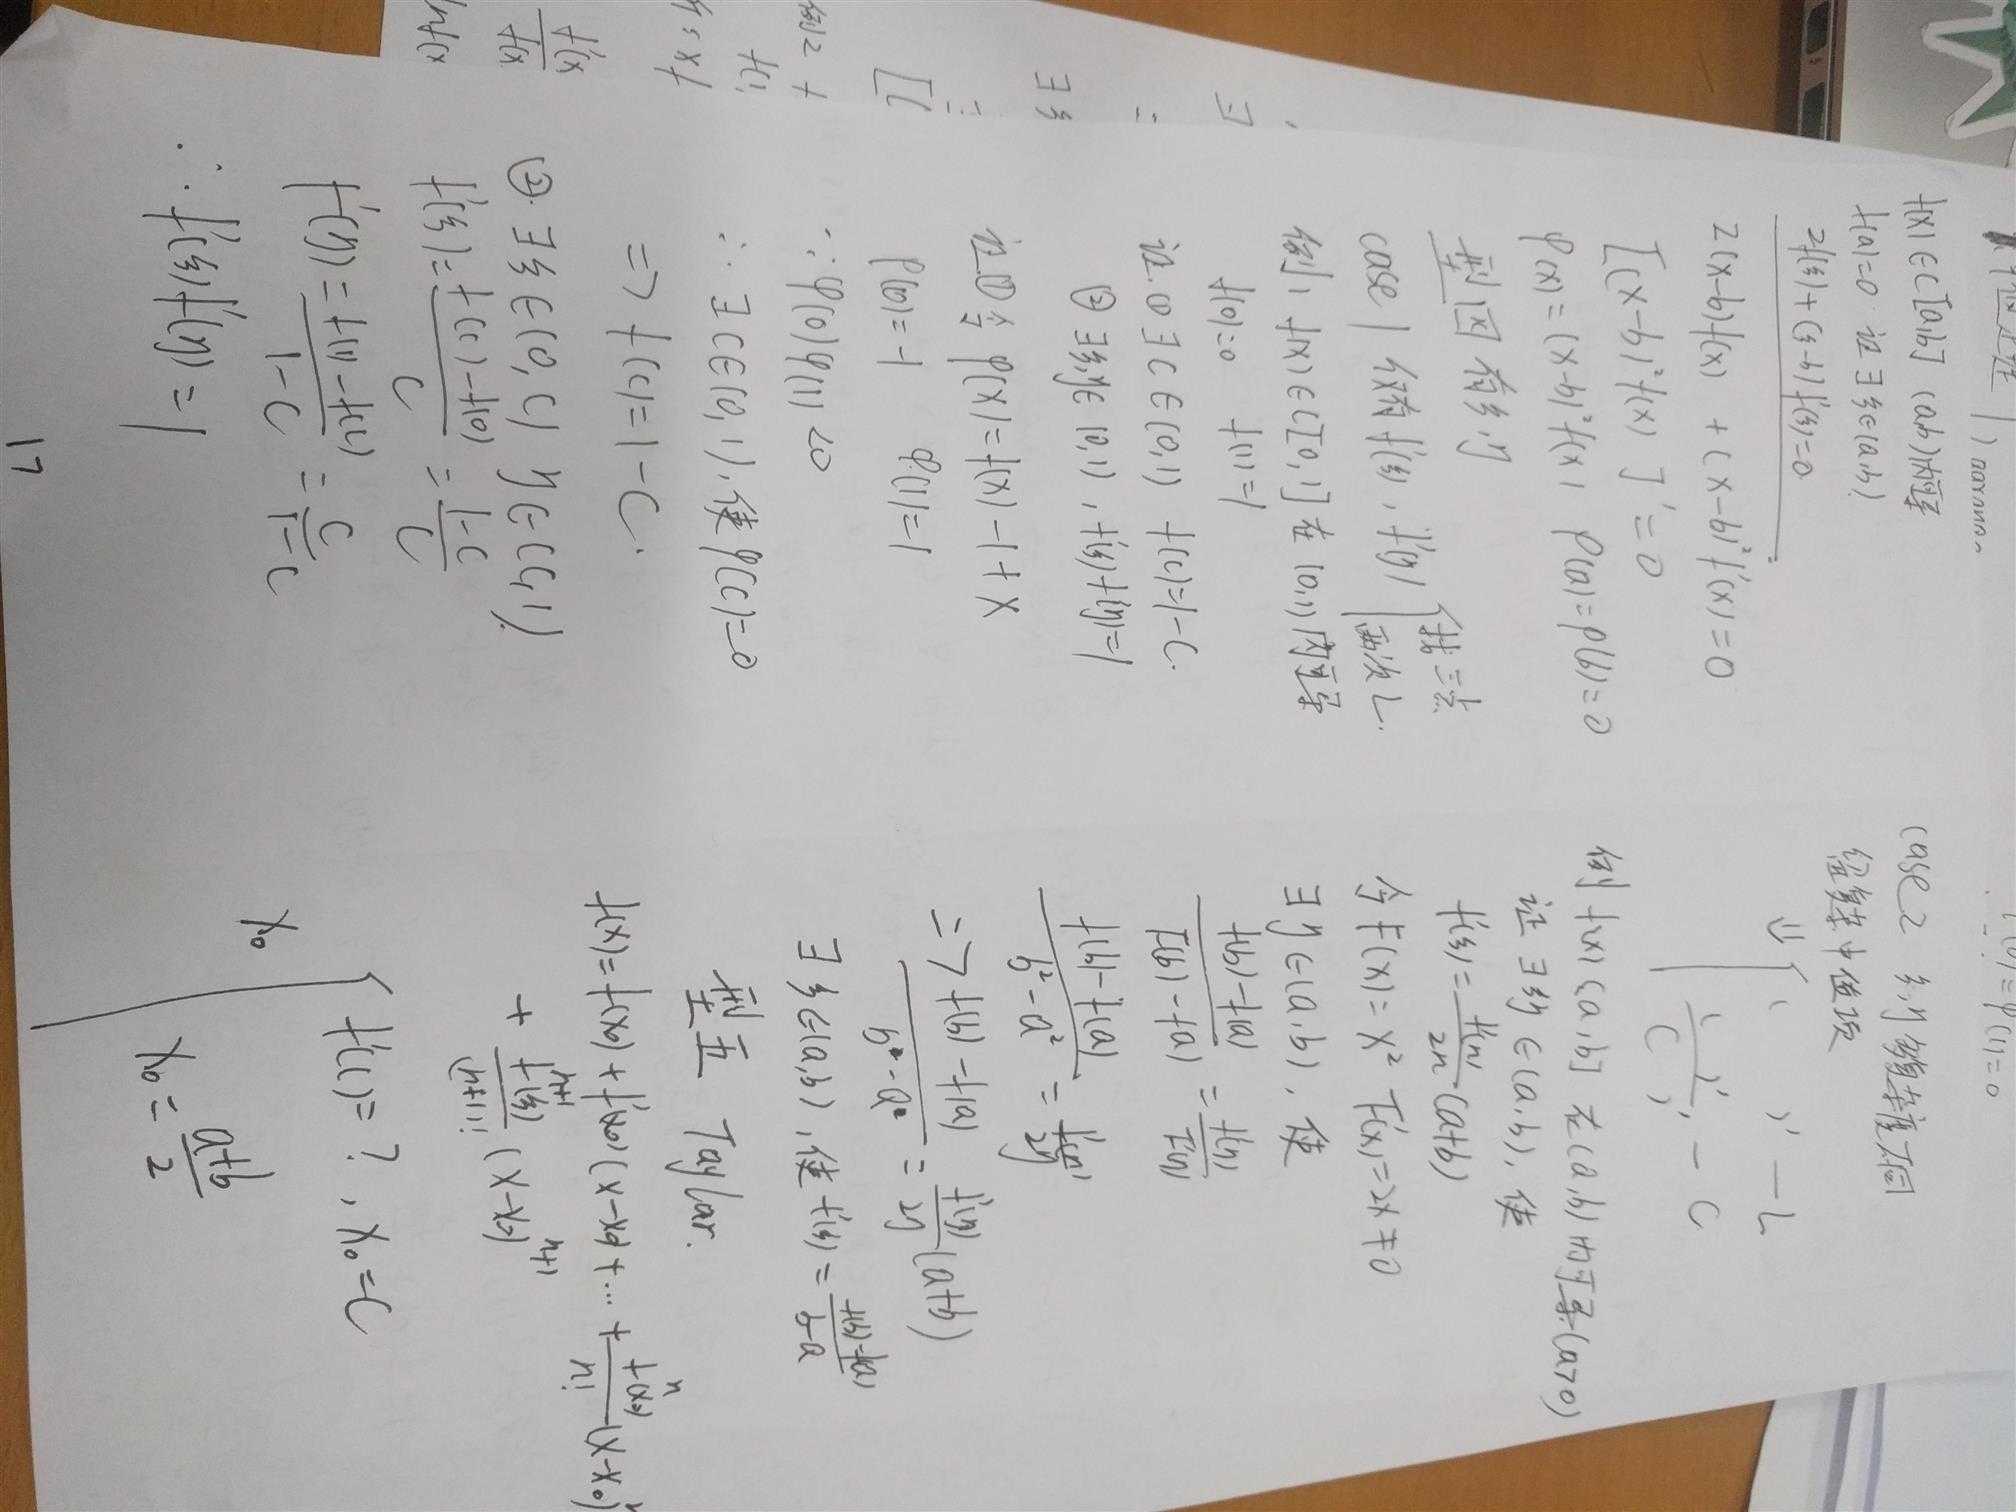 f(x)∈C[a,b] (a,b)内可导
f(a)=0 证∃ξ∈(a,b)
2f(ξ)+(ξ-b)f'(ξ)=0
2(x-b)f(x) + (x-b)²f'(x)=0
[(x-b)²f(x)]'=0
φ(x)=(x-b)²f(x) φ(a)=φ(b)=0
型四 有ξ,η
case 1 仅有f'(ξ),f'(η) {找三点
两次L.
例1 f(x)∈C[0,1] 在(0,1)内可导
f(0)=0 f(1)=1
证.① ∃c∈(0,1) f(c)=1-c.
② ∃ξ,η∈(0,1), f'(ξ)f'(η)=1
证① 令φ(x)=f(x)-1+x
φ(0)=-1 φ(1)=1
∵φ(0)φ(1)<0
∴∃c∈(0,1),使φ(c)=0
=> f(c)=1-c.
②. ∃ξ∈(0,c) η∈(c,1).
f'(ξ)=\frac{f(c)-f(0)}{c}=\frac{1-c}{c}
f'(η)=\frac{f(1)-f(c)}{1-c}=\frac{c}{1-c}
∴f'(ξ)f'(η)=1
17
case 2 ξ,η复杂度不同
留复杂中值项
⇓ { ( )' — L
\frac{( )'}{( )'} — C
例 f(x) C[a,b] 在(a,b)内可导(a>0)
证∃ξ,η∈(a,b),使
f'(ξ)=\frac{f'(η)}{2η}(a+b)
令F(x)=x² F'(x)=2x≠0
∃η∈(a,b),使
\frac{f(b)-f(a)}{F(b)-F(a)}=\frac{f'(η)}{F'(η)}
\frac{f(b)-f(a)}{b²-a²}=\frac{f'(η)}{2η}
=> \frac{f(b)-f(a)}{b-a}=\frac{f'(η)}{2η}(a+b)
∃ξ∈(a,b),使f'(ξ)=\frac{f(b)-f(a)}{b-a}
型五 Taylar.
f(x)=f(x₀)+f'(x₀)(x-x₀)+…+\frac{f^{n}(x₀)}{n!}(x-x₀)^{n}
+\frac{f^{n+1}(ξ)}{(n+1)!}(x-x₀)^{n+1}
x₀ { f'(c)=?, x₀=c
x₀=\frac{a+b}{2}